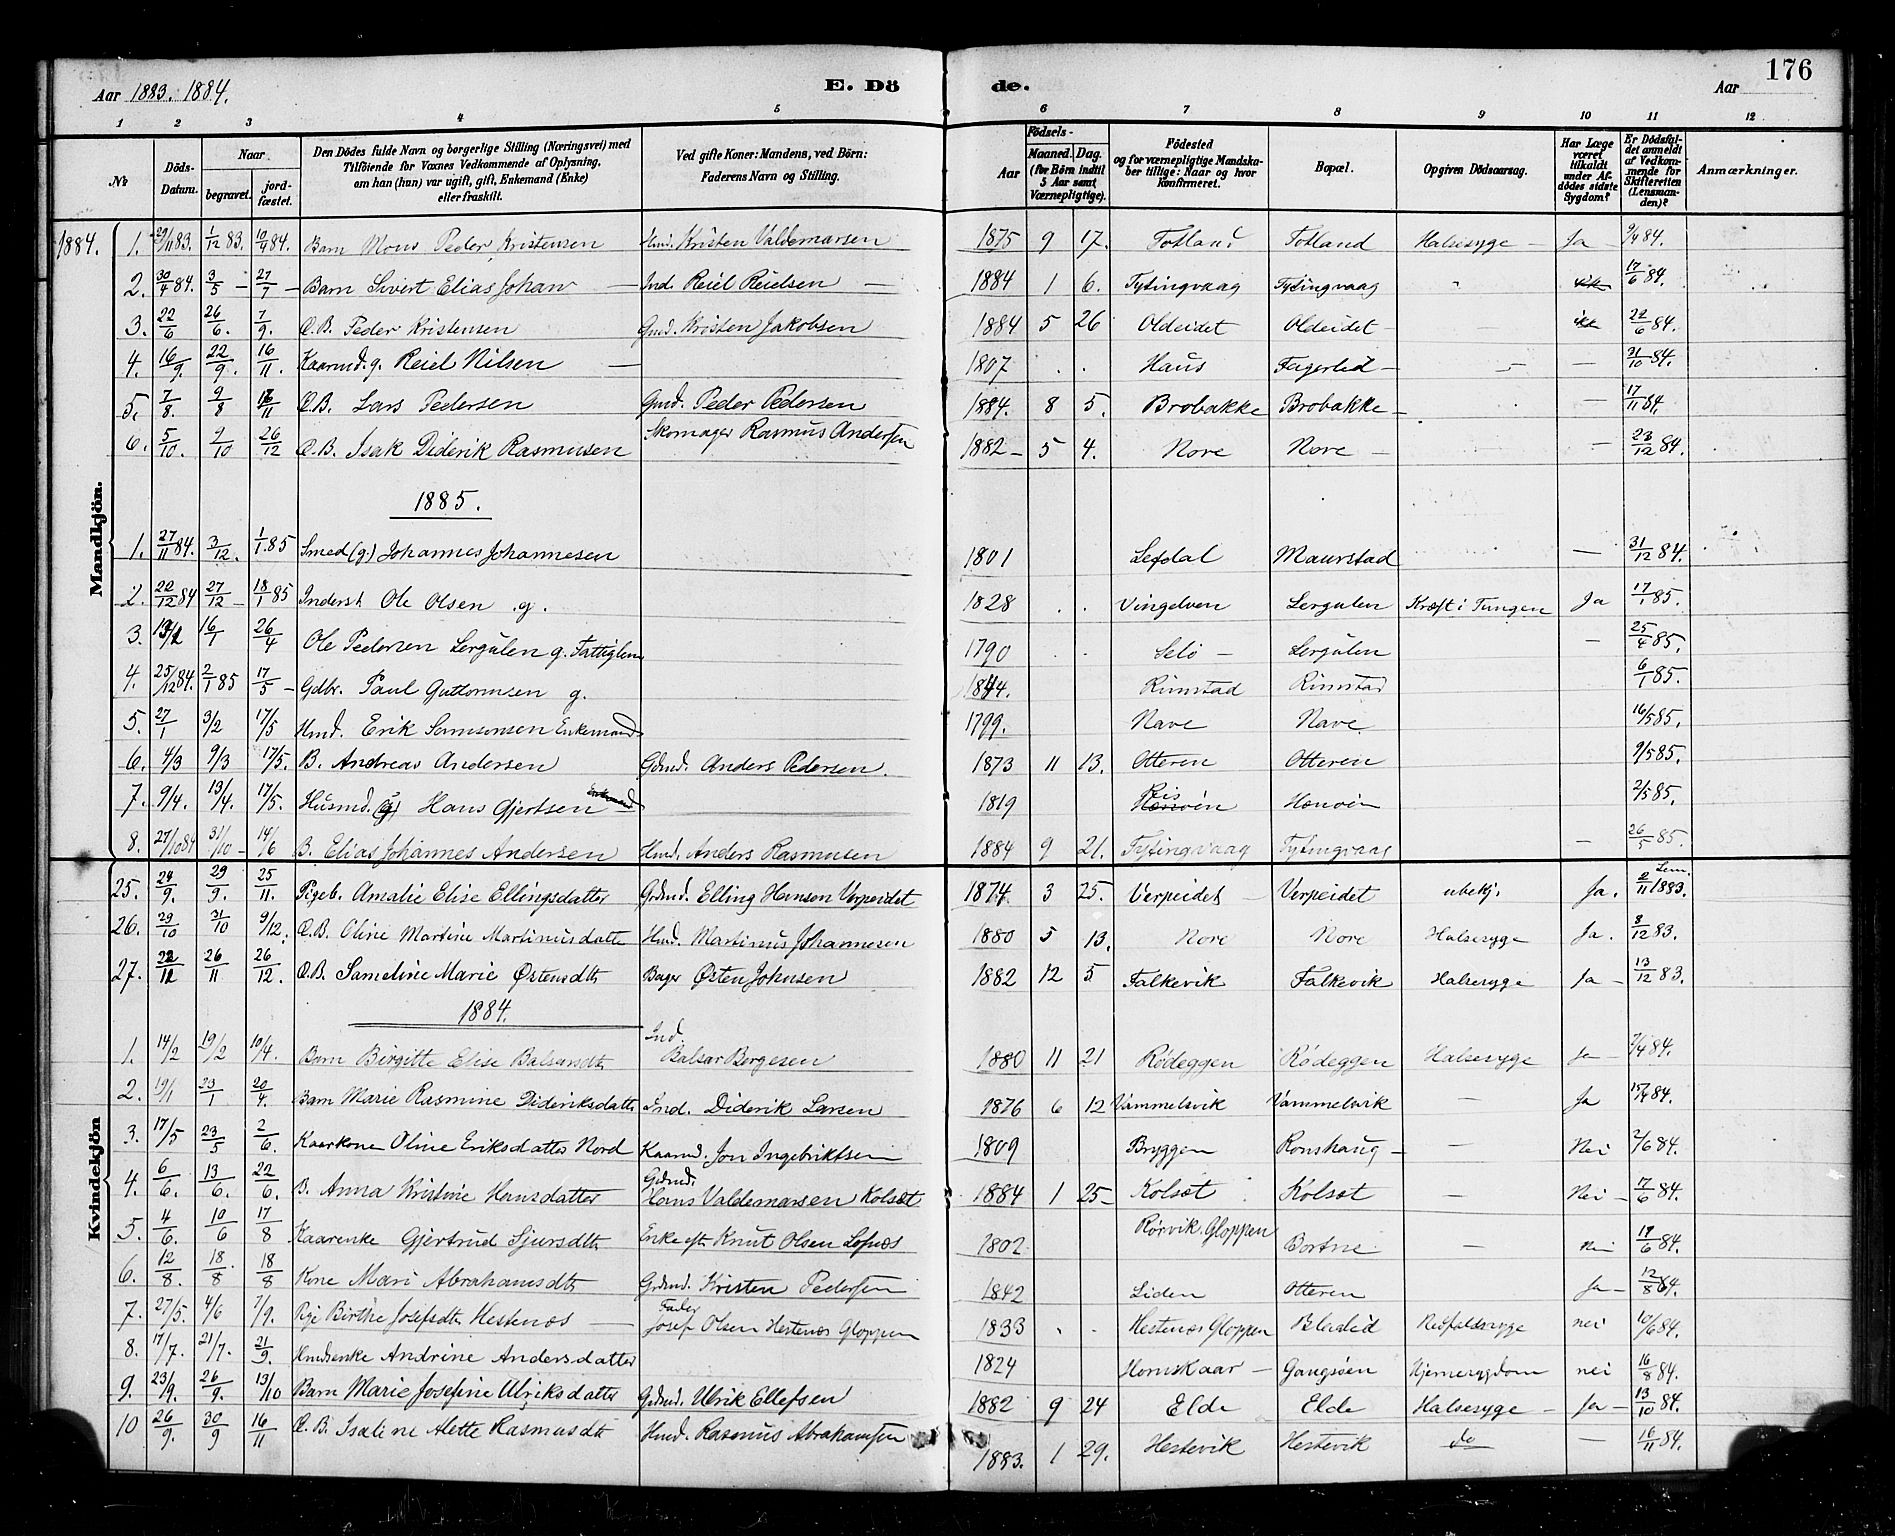 Aar 1883. 1884. E. Dö de. Aar 176
1 2 3 4 5 6 7 8 9 10 11 12
№ Döds-Datum. Naar begravet. jord-fæstet. Den Dödes fulde Navn og borgerlige Stilling (Næringsvei) med Tilföiende for Voxnes Vedkommende af Oplysning, om han (hun) var ugift, gift, Enkemand (Enke) eller fraskilt. Ved gifte Koner: Mandens, ved Börn: Faderens Navn og Stilling. Aar Födsels- Maaned. Dag. (for Börn indtil 5 Aar samt Værnepligtige). Födested og for værnepligtige Mandskaber tillige: Naar og hvor konfirmeret. Bopæl. Opgiven Dödsaarsag. Har Læge været tilkaldt under Afdödes sidste Sygdom? Er Dödsfaldet anmeldt af Vedkommende for Skifteretten (Lensmanden)? Anmærkninger.
Mandkjön.
1884. 1. 29/11 83. 1/12 83. 10/4 84. Barn Mons Peder Kristensen Hmd. Kristen Valdemarsen 1875 9 17. Totland Totland Halssyge - Ja 9/4 84.
2. 30/4 84. 3/5 - 27/7 - Barn Sivert Elias Johan - Ind. Reiel Reielsen - 1884 1 6. Tytingvaag Tytingvaag 17/6 84.
3. 22/6 26/6. 7/9. Æ.B. Peder Kristensen Gmd. Kristen Jakobsen 1884 5 26 Oldeidet Oldeidet - 22/6 84.
4. 16/9. 22/9. 16/11. Kaarmd. g. Reiel Nilsen - 1807 . . Haus Fagerlid - - 31/10 84.
5. 7/8. 9/8 16/11 Æ.B. Lars Pedersen Gmd. Peder Pedersen 1884. 8 5. Brobakke Brobakke - - 17/11 84.
6. 5/10. 9/10 26/12 Æ.B. Isak Diderik Rasmusen Skomager Rasmus Andersen 1882 - 5 4. Nore Nore - - 23/12 84.
1885.
1. 27/11 84. 3/12. 1/1. 85 Smed (g.) Johannes Johannesen 1801 Lefdal Maurstad - 31/12 84.
2. 22/12 84 27/12 - 18/1 85 Inderst Ole Olsen g. 1828 . . Vingelven Lergulen Kræft i Tungen Ja 17/1 85.
3. 16/1 26/4 Ole Pedersen Lergulen g. Fattiglem 1790 . . Selö - Lergulen - 25/4 85.
4. 25/12 84. 2/1 85 17/5 - Gdbr. Paul Guttormsen g. 1844. Rimstad Rimstad 6/1 85.
5. 27/1 3/2 17/5 Hmd. Erik Samsonsen Enkemand 1799. Nave Nave 16/5 85.
6. 4/3 9/3 17/5. B. Andreas Andersen Gdmd. Anders Pedersen. 1873 11 13. Otteren Otteren 9/5 85.
7. 9/4. 13/4. 17/5. Husmd. Hans Gjertsen Enkemand 1819 Henöen 2/5 85.
8. 27/10 84 31/10 - 14/6 B. Elias Johannes Andersen Hmd. Anders Rasmusen 1884 9 21. Tytingvaag Tytingvaag - 26/5 85.
Kvindekjön
25. 24/9. 29/9. 25/11. Pigeb. Amalie Elise Ellingsdatter Grdmd. Elling Hansen Verpeidet 1874. 3 25. Verpeidet - Verpeidet ubekj. Ja. Lem. 2/11 1883.
26. 29/10 31/10 9/12. Æ.B. Oline Martine Martinusdatter Hmd. Martinus Johannesen 1880 5 13. Nore Nore Halssyge Ja. 8/12 83.
27. 26/11 26/12. Æ.B. Sameline Marie Østensdtr Bager Østen Johnsen 1882 12 5 Falkevik Falkevik Halssyge Ja - 13/12 83.
1884.
1. 14/2 19/2 10/4. Barn Birgitte Elise Balsarsdtr Ind. Balsar Børgesen 1880 11 21 Rödeggen Rödeggen Halssyge Ja - 7/4 84.
2. 19/1 23/1 20/4. Barn Marie Rasmine Dideriksdatter Ind. Diderik Larsen 1876 6 12 Vammelsvik Vammelsvik - Ja 15/4 84.
3. 17/5 23/5 2/6. Kaarkone Oline Eriksdatter Nord Kaarmd. Jon Ingebriktsen 1809 Bryggen Ronshaug - - Nei 2/6 84.
4. 6/6. 13/6. 22/6. B. Anna Kristine Hansdatter Grdmd. Hans Valdemarsen Kolset 1884 1 25 - Kolset Kolset - Nei - 17/6 84.
5. 4/6. 10/6 17/8 Kaarenke Gjertrud Sjursdtr Enke eft. Knut Olsen Lofnæs 1802 Rörvik. Gloppen Bortne - Nei 17/6 84.
6. 12/8. 18/8 18/8 Kone Mari Abrahamsdtr Grdmd. Kristen Pedersen 1842 Liden Otteren Ja - 12/8 84.
7. 27/5. 4/6 7/9. Pige Birthe Josefsdtr Hestenæs - Fader Josef Olsen Hestenæs Gloppen 1833 . . Hestenæs Gloppen Blalid Nedfaldssyge nei 10/6 84.
8. 17/7. 21/7. 21/9. Hmdsenke Andrine Andersdatter 1824 Hornskaar - Gangsöen Hjernesygdom nei 16/8 84.
9. 23/9. 26/9. 13/10 Barn Marie Josefine Ulriksdatter Grdmd. Ulrik Ellefsen 1882 9 24 Elde Elde Halssyge - Ja - 13/10 84.
10 26/9. 30/9 16/11 Æ.B. Isaline Alette Rasmusdtr Hmd. Rasmus Abrahamsen 1883. 1 29. Hestevik Hestevik do - 16/11 84.